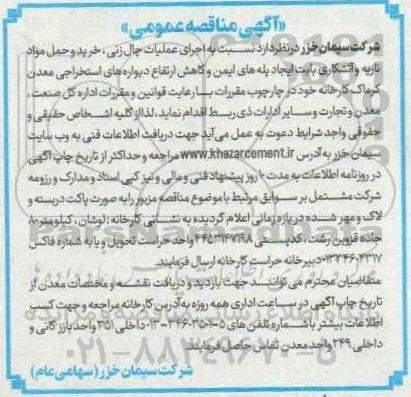 «آگهی مناقصه عمومی»
شرکت سیمان خزر در نظر دارد نسبت به اجرای عملیات چال زنی، خرید و حمل مواد
ناریه و آتشکاری بابت ایجاد پله های ایمن و کاهش ارتفاع دیواره های استخراجی معدن
کرماک کارخانه خود در چارچوب مقررات با رعایت قوانین و مقررات اداره کل صنعت،
معدن و تجارت و سایر ادارات ذی ربط اقدام نماید، لذا از کلیه اشخاص حقیقی و
حقوقی واجد شرایط دعوت به عمل می آید جهت دریافت اطلاعات فنی به وب سایت
سیمان خزر به آدرس www.khazarcement.ir مراجعه و حداکثر از تاریخ چاپ آگهی
در روزنامه اطلاعات به مدت ۱۰ روز پیشنهاد فنی و مالی و نیز کپی اسناد و مدارک و رزومه
شرکت مشتمل بر سوابق مرتبط با موضوع مناقصه مزبور را به صورت پاکت دربسته و
لاک و مهر شده در بازه زمانی اعلام گردیده به نشانی کارخانه: لوشان، کیلومتر ۸۰
جاده قزوین رشت، کدپستی ۴۴۵۳۱۴۷۹۸ واحد حراست تحویل و یا به شماره فاکس
دبیرخانه حراست کارخانه ارسال فرمایند.
متقاضیان محترم می توانند جهت بازدید و دریافت نقشه و مختصات معدن از
تاریخ چاپ آگهی در ساعات اداری همه روزه به آدرس کارخانه مراجعه و جهت کسب
اطلاعات بیشتر با شماره تلفن های ۵-۳۴۶۰۳۵۰۱-۰۱۳ داخلی ۳۵۱ واحد بازرگانی و
داخلی ۲۴۹ واحد معدن تماس حاصل فرمایند.
شرکت سیمان خزر (سهامی عام)
۰۲۱-۸۸۳۴۹۶۷۰-۵